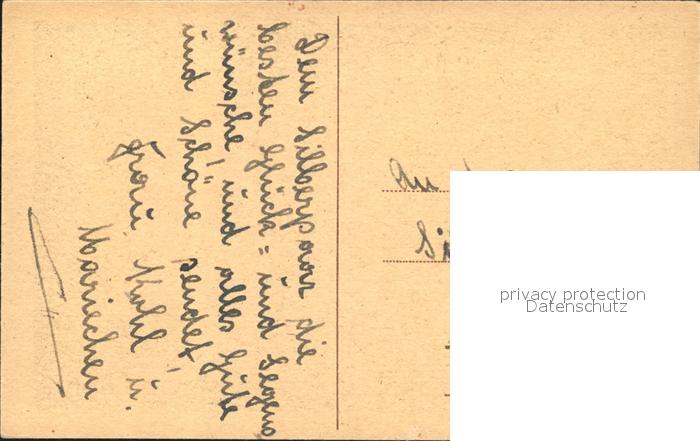 Dem Silberpaar die
besten Glück= und Segens
wünsche, und alles Gute
und Schöne sendet
Frau Kohl u.
Mariechen
An
privacy protection
Datenschutz